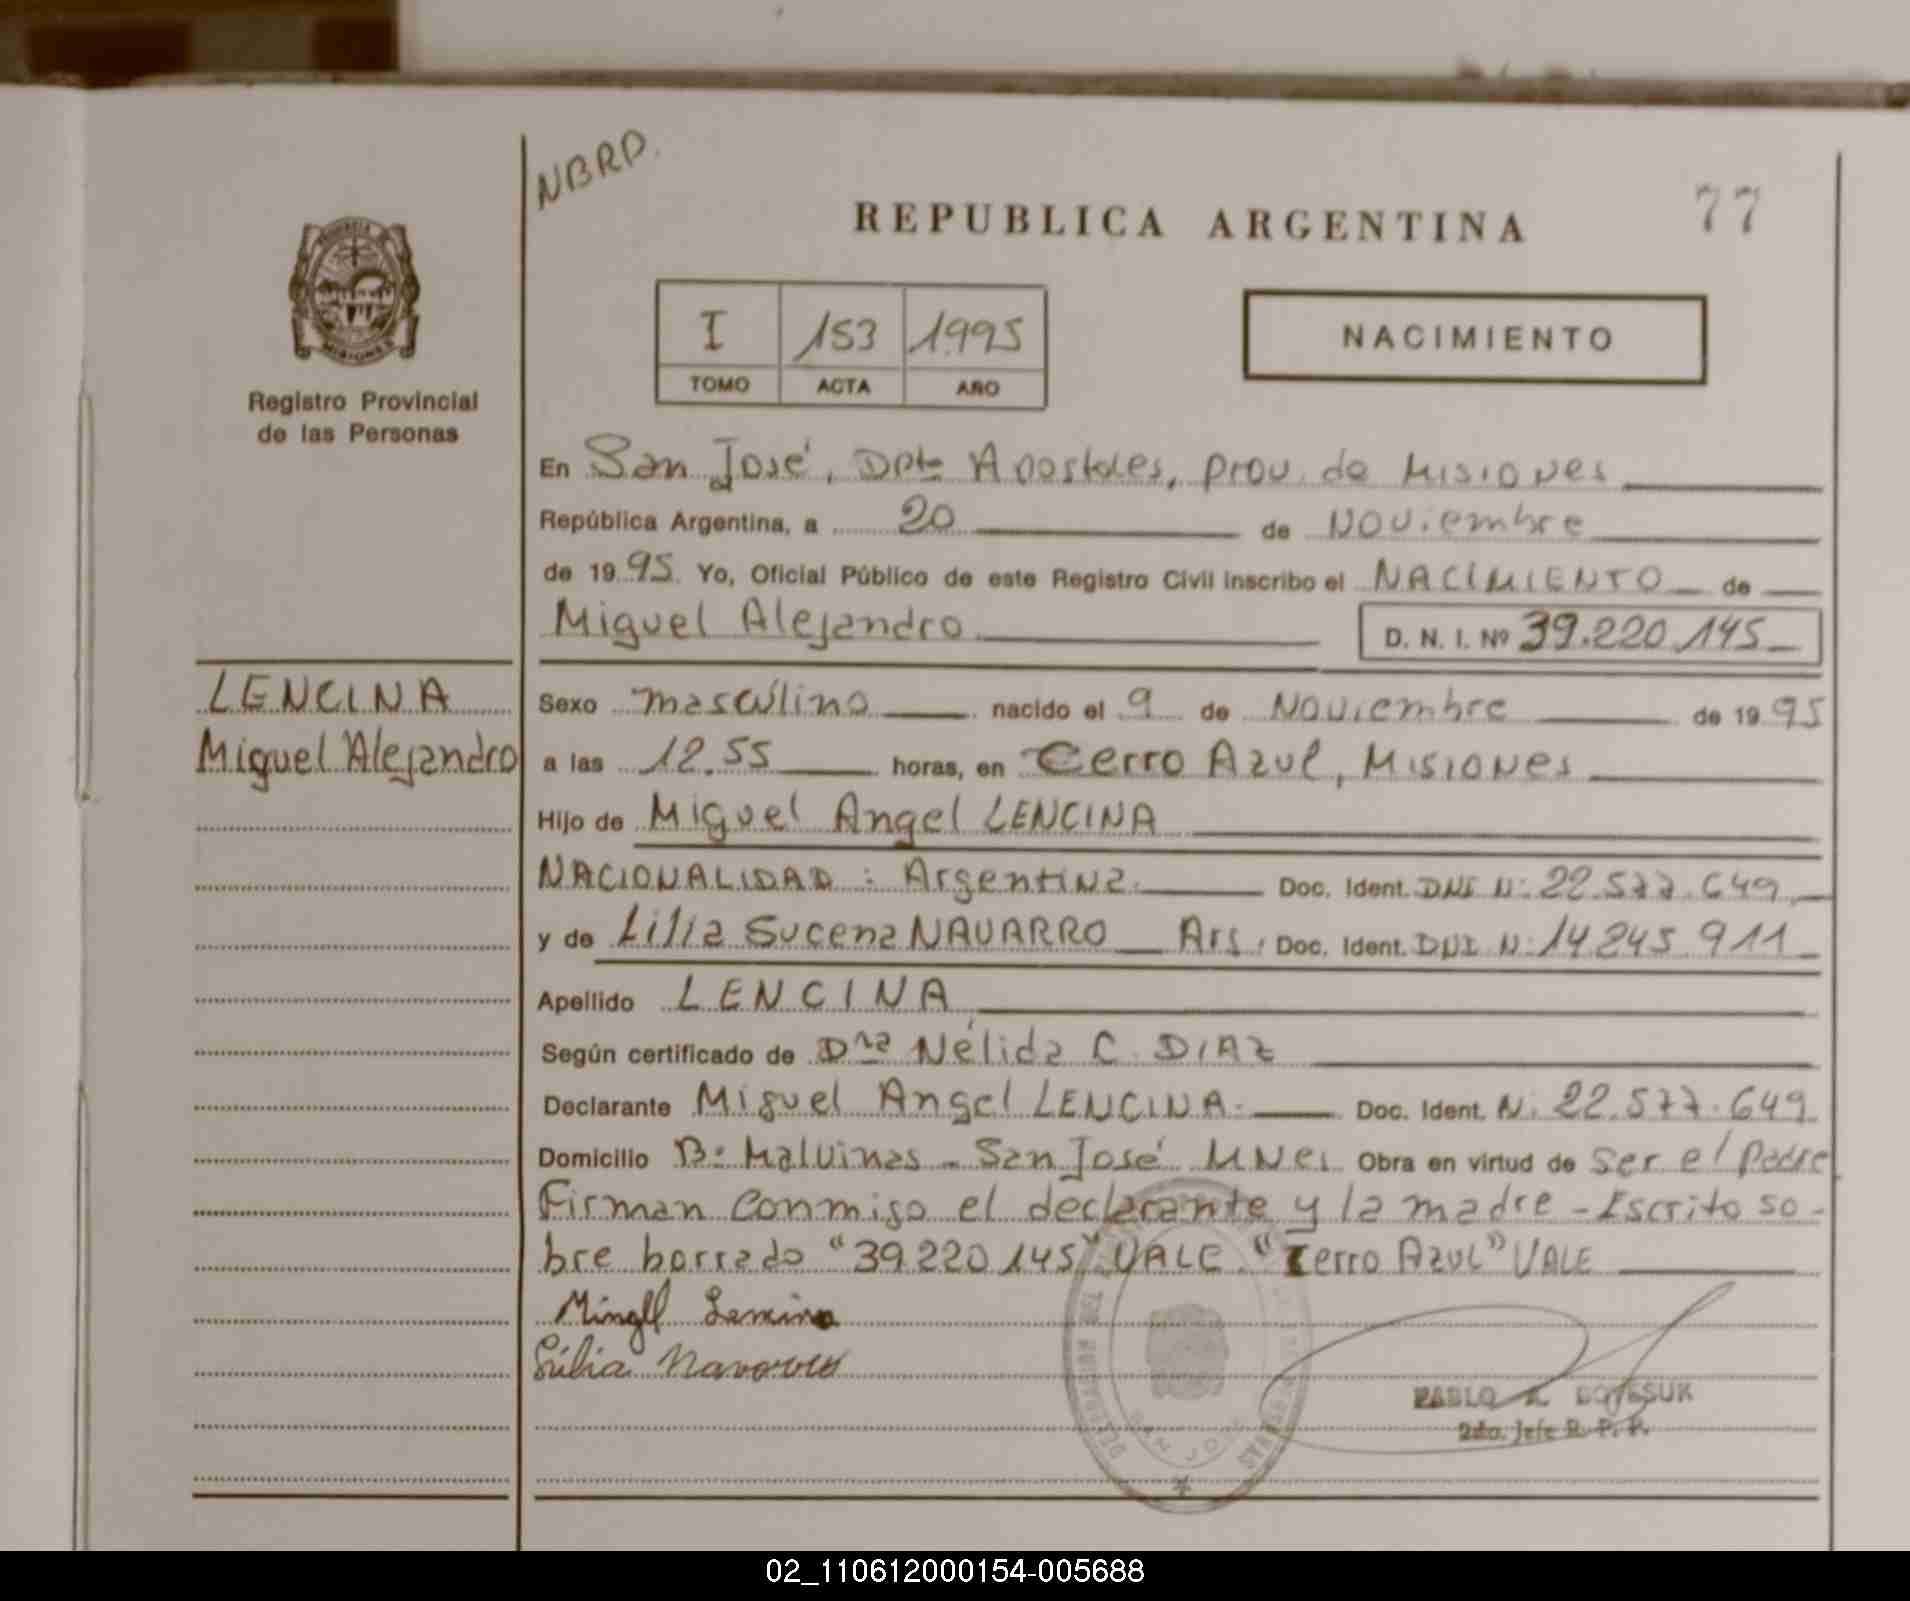 NBRD.
REPUBLICA ARGENTINA
77
MISIONES
Registro Provincial
de las Personas
I 153 1995
TOMO ACTA AÑO
NACIMIENTO
En San José, Dpto Apostoles, prov. de Misiones
República Argentina, a 20 de Noviembre
de 1995 Yo, Oficial Público de este Registro Civil inscribo el NACIMIENTO de
Miguel Alejandro D. N. I. Nº 39.220.145
LENCINA
Miguel Alejandro
Sexo masculino nacido el 9 de Noviembre de 1995
a las 12.55 horas, en Cerro Azul, Misiones
Hijo de Miguel Angel LENCINA
NACIONALIDAD: Argentina. Doc. Ident. DNI N: 22.577.649
y de Lilia Sucena NAVARRO Arg, Doc. Ident. DNI N: 14.245.911
Apellido LENCINA
Según certificado de Dra Nélida C. DIAZ
Declarante Miguel Angel LENCINA. Doc. Ident. N. 22.577.649
Domicilio B: Malvinas - San José Mnes Obra en virtud de Ser el padre
Firman conmigo el declarante y la madre - Escrito so-
bre borrado "39.220.145" VALE. "Cerro Azul" VALE
Lencina
SAN JOSE
PABLO
2do. Jefe R. P. P.
02_110612000154-005688